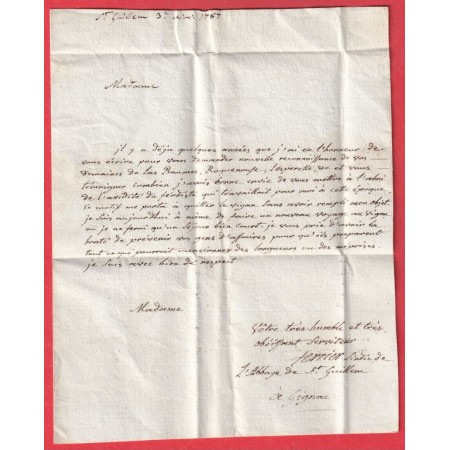 St Guillem 3e 1787
Madame
il y a déja quelques années que j'ai eu l'honneur de
vous écrire pour vous demander nouvelle reconnoissance de vos
domaines de Las Baumes, Roquenoufe, et vous
témoigner combien j'avais bonne envie de vous mettre à l'abri
de l'avidité du feudiste qui travaillait pour moi à cette époque.
Ce motif me porta à quitter le vigan sans avoir rempli mon objet.
je suis aujourd'hui à même de faire un nouveau voyage au vigan
ou je ne ferai qu'un séjour bien court. je vous prie d'avoir la
bonté de prévenir vos gens d'affaires pour qu'ils préparent
tout ce que pourrait occasionner des longueurs ou des méprises.
je suis avec bien de respect
Madame
Vôtre très humble et très
obéissant serviteur
ferrier sindic de
L'Abbaye de St Guillem
à Gignac